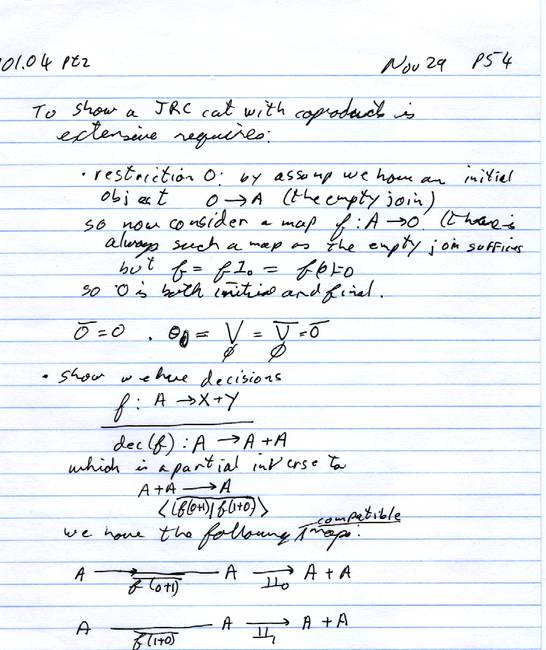 01.04 Pt2 Nov 29 P54
To show a JRC cat with coproducts is
extensive requires:
· restriction 0: by assump we have an initial
object 0 → A (the empty join)
so now consider a map f: A → 0 (there is
always such a map as the empty join suffices
but f = f 1₀ = f 0 = 0
so 0 is both initial and final.
0̅ = 0 . = ⋁_∅ = ⋁̅_∅ = 0̅
· show we have decisions
f : A → X+Y
dec(f) : A → A+A
which is a partial inverse to
A+A → A
⟨f(0+1)‾ | f(1+0)‾⟩
we have the following compatible maps:
A → A →∐₀ A + A
f(0+1)‾
A A →∐₁ A + A
f(1+0)‾